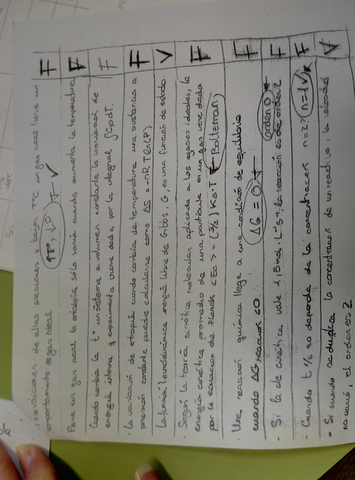 condiciones de altas presiones y bajas Tªˢ, un gas real tiene un F
comportamiento de gas ideal ↑Tª, ↓P F V
Para un gas real la entalpía sólo varía cuando aumenta la temperatura F
Cuando cambia la tª un sistema a volumen constante la variación de F
energía interna y experimenta viene dada por la integral ∫CpdT.
· La variación de entropía cuando cambia de temperatura una sustancia a F
presión constante puede calcularse como ΔS = -nRTln(P)
La función termodinámica energía libre de Gibbs, G, es una función de estado V
· Según la teoría cinética molecular aplicada a los gases ideales, la F
energía cinética promedio de una partícula en un gas viene dada
por la ecuación de Planck <Ec> = (3/2) KB·T Boltzman.
Una reacción química llega a una condición de equilibrio F
cuando ΔG reacción <0 (ΔG = 0)
· Si la k cinética vale 1,5 mol·L⁻¹s⁻¹ la reacción es de orden 2 F
(orden 0)
· Cuando t ½ no depende de la concentración n=2? n=1 F
· Si cuando se duplica la concentración de un reactivo la velocidad V
el orden es 2